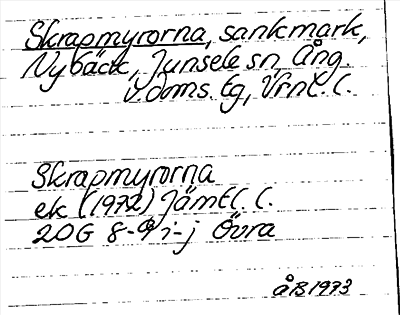 Skrapmyrorna, sankmark,
Nybäck, Junsele sn, Ång.
v. doms. tg, Vrnl. l.
Skrapmyrorna
ek (1972) Jämtl. l.
20G 8-9 i-j Övra
åB 1973